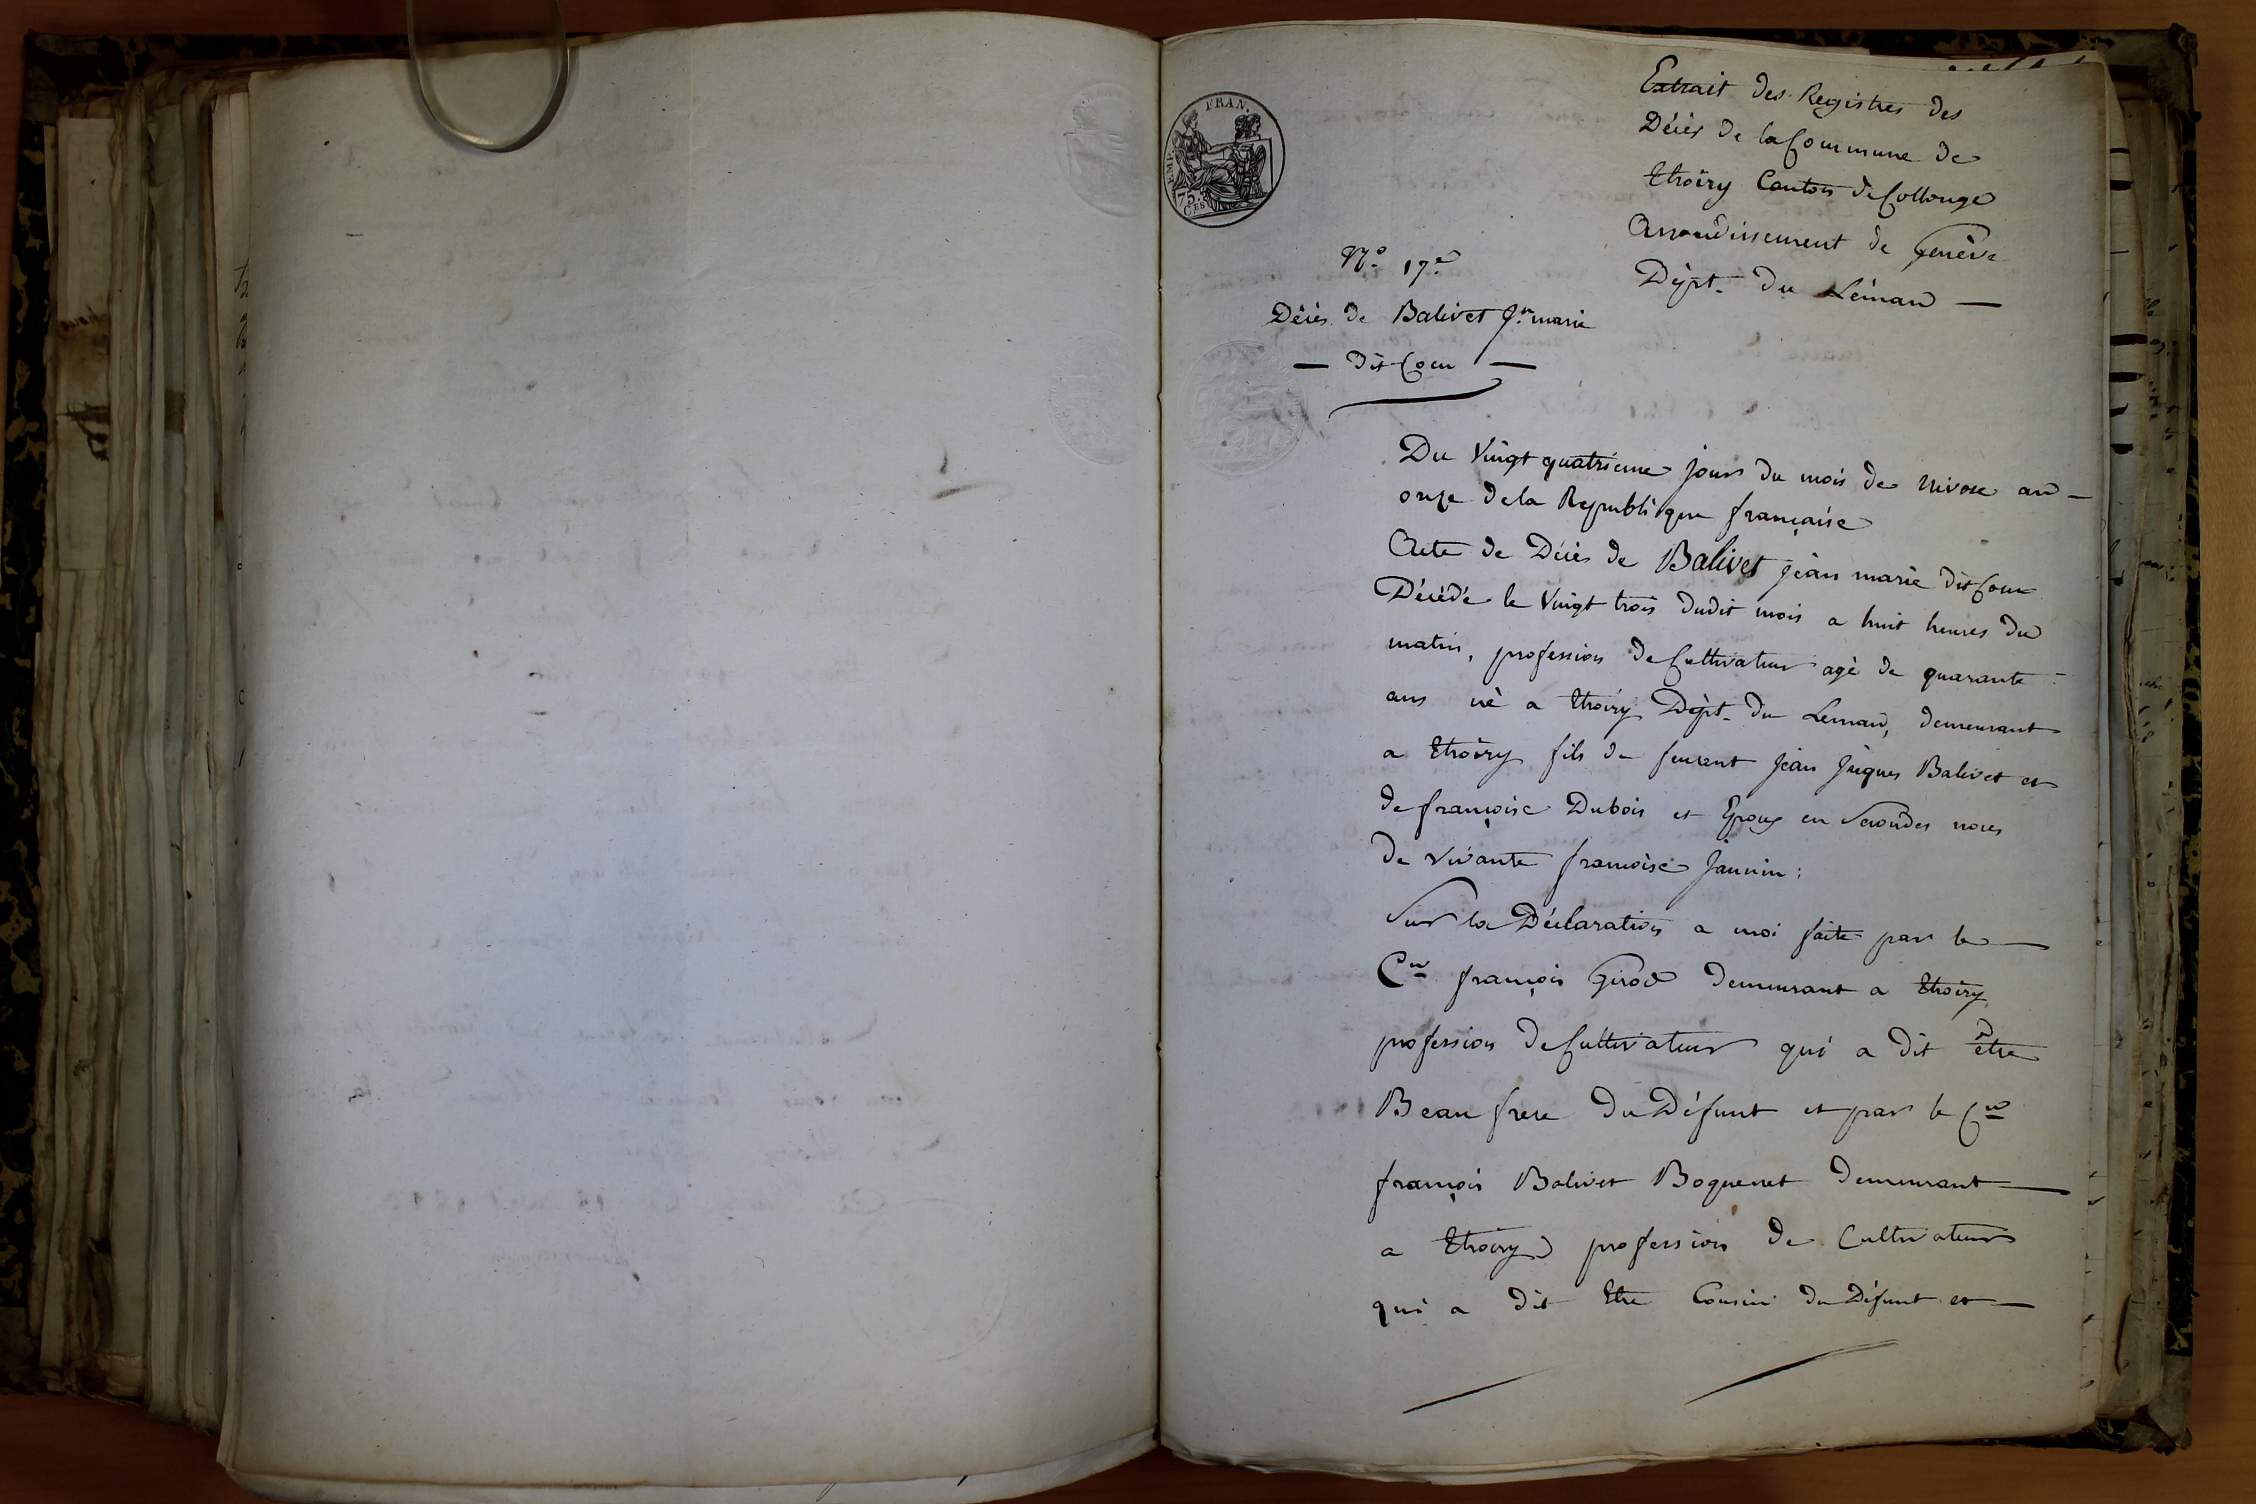 Extrait des Registres des
Décès de la Commune de
Thoiry Canton de Collonge
Arrondissement de Genève
Dépt. du Léman —
EMP. FRAN.
75. CES
N.° 17.e
Décès de Balivet Jn. marie
— dit Cour —
Du Vingt quatrieme jour du mois de Nivose an —
onze de la Republique française
Acte de Décès de Balivet jean marie dit Cour
Décédé le Vingt trois dudit mois a huit heures du
matin, profession de Cultivateur agé de quarante
ans né a Thoiry Dépt. du Leman, demeurant
a Thoiry fils de feurent Jean Jaques Balivet et
de françoise Dubois et Epoux en Secondes noces
de vivante françoise Jannin :
Sur la Déclaration a moi faite par le —
Cen françois Girod demeurant a Thoiry
profession de Cultivateur qui a dit être
Beau frere du Défunt et par le Cen
françois Balivet Boquenet demeurant —
a Thoiry profession de Cultivateur
qui a dit Etre Cousin du Défunt et —